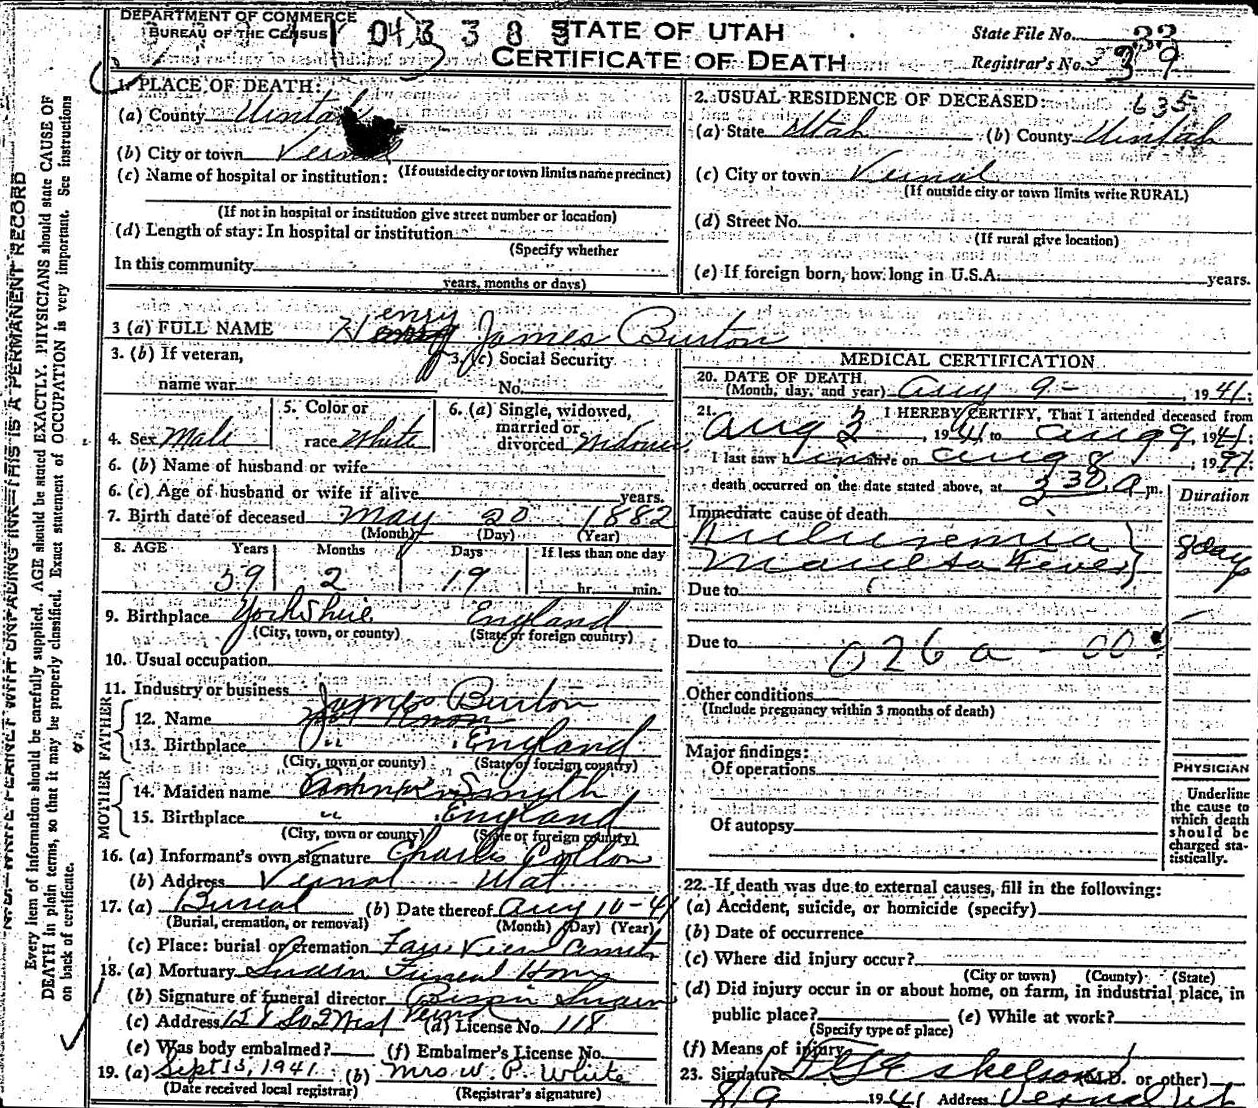 DEPARTMENT OF COMMERCE
BUREAU OF THE CENSUS
STATE OF UTAH
CERTIFICATE OF DEATH
State File No. 33
Registrar's No. 39
1. PLACE OF DEATH:
(a) County Uintah
(b) City or town Vernal
(If outside city or town limits name precinct)
(c) Name of hospital or institution:
(If not in hospital or institution give street number or location)
(d) Length of stay: In hospital or institution
(Specify whether
In this community
years, months or days)
2. USUAL RESIDENCE OF DECEASED: 635
(a) State Utah (b) County Uintah
(c) City or town Vernal
(If outside city or town limits write RURAL)
(d) Street No.
(If rural give location)
(e) If foreign born, how long in U.S.A. years.
3 (a) FULL NAME Henry James Burton
3. (b) If veteran, name war
3. (c) Social Security No.
4. Sex Male
5. Color or race White
6. (a) Single, widowed, married or divorced Widower
6. (b) Name of husband or wife
6. (c) Age of husband or wife if alive years.
7. Birth date of deceased May 20 1882
(Month) (Day) (Year)
8. AGE Years Months Days If less than one day
59 2 19 hr. min.
9. Birthplace Yorkshire England
(City, town, or county) (State or foreign country)
10. Usual occupation
11. Industry or business
FATHER
12. Name James Burton
13. Birthplace " England
(City, town, or county) (State or foreign country)
MOTHER
14. Maiden name Smith
15. Birthplace " England
(City, town or county) (State or foreign country)
16. (a) Informant's own signature Charles
(b) Address Vernal Utah
17. (a) Burial (b) Date thereof Aug 10-41
(Burial, cremation, or removal) (Month) (Day) (Year)
(c) Place: burial or cremation
18. (a) Mortuary Swain Funeral Home
(b) Signature of funeral director Swain
(c) Address Vernal (d) License No. 118
(e) Was body embalmed? (f) Embalmer's License No.
19. (a) Sept 13, 1941 (b) Mrs W. P. White
(Date received local registrar) (Registrar's signature)
MEDICAL CERTIFICATION
20. DATE OF DEATH
(Month, day, and year) Aug 9- , 1941;
21. I HEREBY CERTIFY, That I attended deceased from
Aug 3, 1941 to Aug 9, 1941;
I last saw him alive on Aug 8, 1941;
death occurred on the date stated above, at 3 30 a m.
Duration
Immediate cause of death
Malta Fever 8 days
Due to
Due to 026a - 00
Other conditions
(Include pregnancy within 3 months of death)
Major findings:
Of operations
Of autopsy
PHYSICIAN
Underline
the cause to
which death
should be
charged sta-
tistically.
22. If death was due to external causes, fill in the following:
(a) Accident, suicide, or homicide (specify)
(b) Date of occurrence
(c) Where did injury occur?
(City or town) (County) (State)
(d) Did injury occur in or about home, on farm, in industrial place, in
public place? (e) While at work?
(Specify type of place)
(f) Means of injury
23. Signature Eskelson (M.D. or other)
8/9 1941 Address Vernal Ut
N.B. WRITE PLAINLY WITH UNFADING INK—THIS IS A PERMANENT RECORD
Every item of information should be carefully supplied. AGE should be stated EXACTLY. PHYSICIANS should state CAUSE OF
DEATH in plain terms, so that it may be properly classified. Exact statement of OCCUPATION is very important. See instructions
on back of certificate.